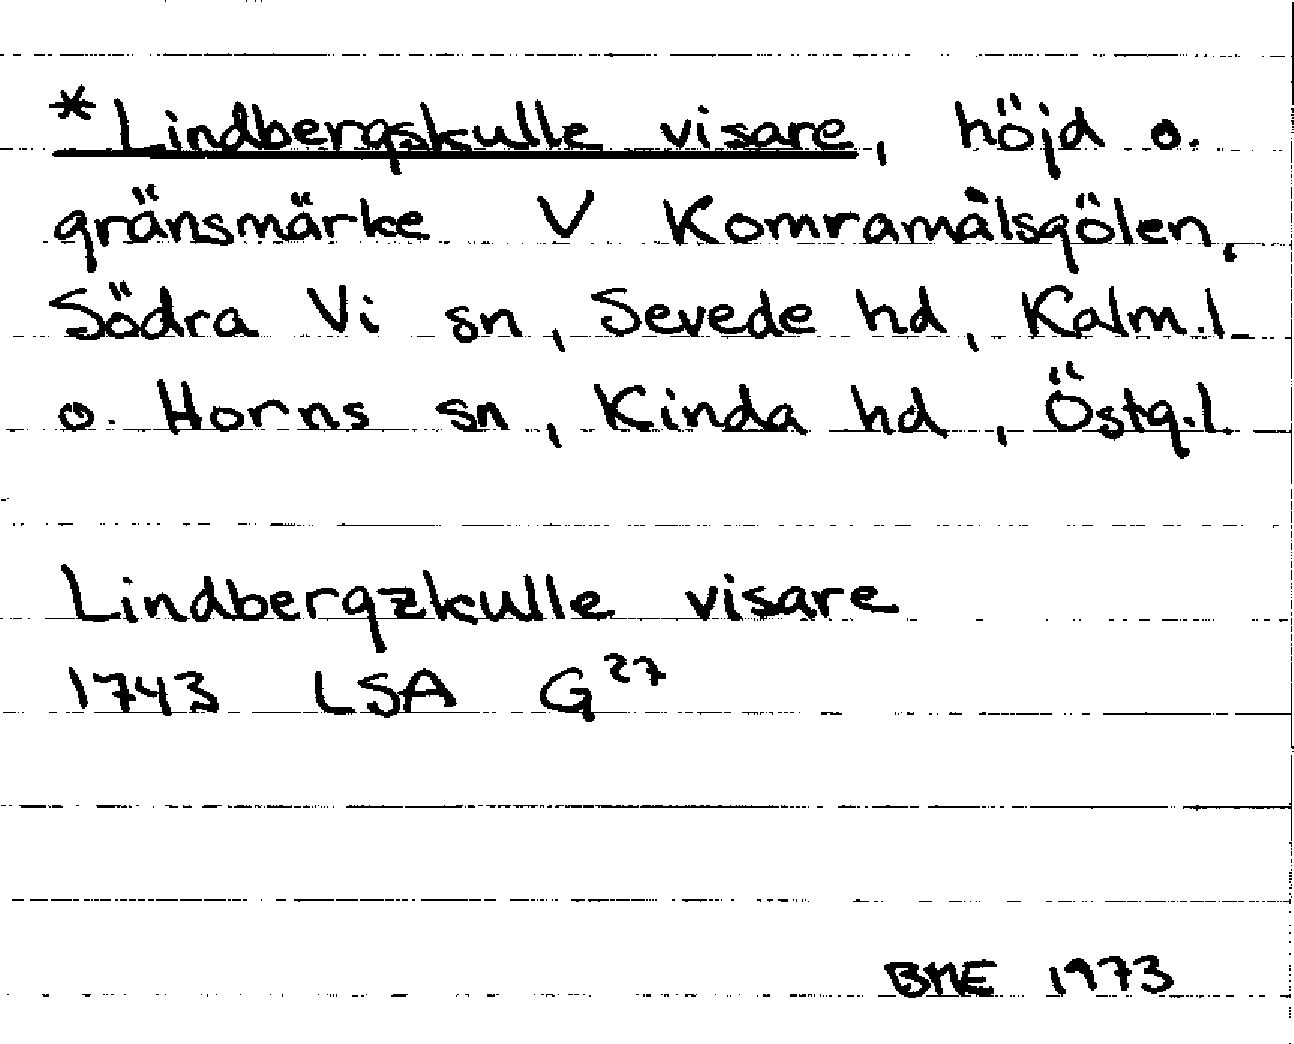 *Lindbergskulle visare, höjd o.
gränsmärke V Komramålsgölen,
Södra Vi sn, Sevede hd, Kalm.l.
o. Horns sn, Kinda hd, Östg.l.
Lindbergzkulle visare
1743 LSA G27
BME 1973